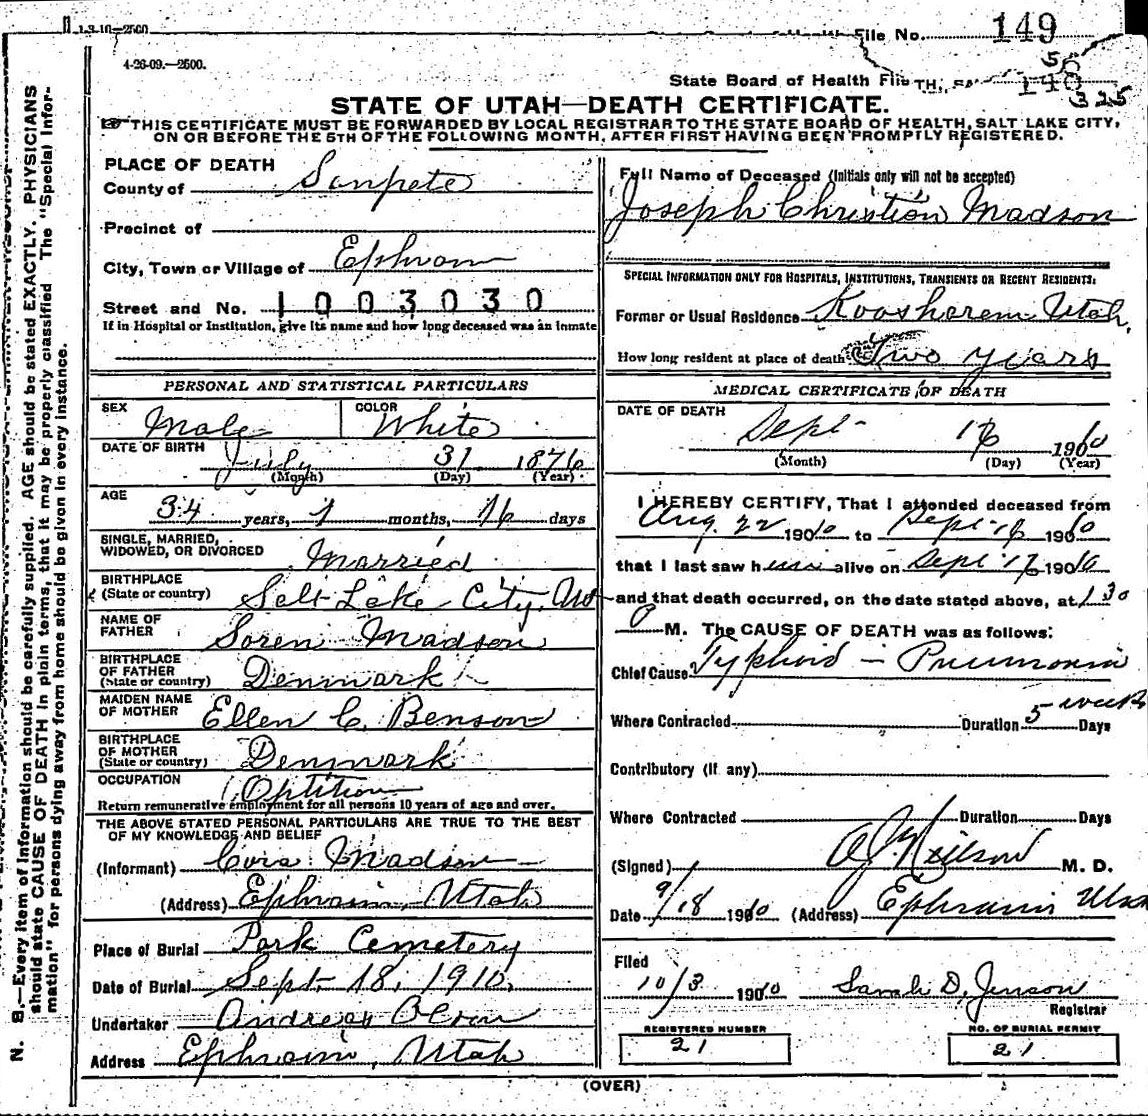 1-3-10-2500
File No. 149
4-26-09.—2500.
56
State Board of Health File 148
325
STATE OF UTAH—DEATH CERTIFICATE.
THIS CERTIFICATE MUST BE FORWARDED BY LOCAL REGISTRAR TO THE STATE BOARD OF HEALTH, SALT LAKE CITY,
ON OR BEFORE THE 5TH OF THE FOLLOWING MONTH, AFTER FIRST HAVING BEEN PROMPTLY REGISTERED.
N. B.—Every item of Information should be carefully supplied. AGE should be stated EXACTLY. PHYSICIANS
should state CAUSE OF DEATH in plain terms, that it may be properly classified. The "Special Infor-
mation" for persons dying away from home should be given in every instance.
PLACE OF DEATH
County of Sanpete
Precinct of
City, Town or Village of Ephraim
Street and No. 1003030
If in Hospital or Institution, give its name and how long deceased was an inmate
PERSONAL AND STATISTICAL PARTICULARS
SEX Male COLOR White
DATE OF BIRTH July 31 1876
(Month) (Day) (Year)
AGE 34 years, 1 months, 16 days
SINGLE, MARRIED,
WIDOWED, OR DIVORCED Married
BIRTHPLACE
(State or country) Salt Lake City,
NAME OF
FATHER Soren Madson
BIRTHPLACE
OF FATHER
(State or country) Denmark
MAIDEN NAME
OF MOTHER Ellen C. Benson
BIRTHPLACE
OF MOTHER
(State or country) Denmark
OCCUPATION Optition
Return remunerative employment for all persons 10 years of age and over.
THE ABOVE STATED PERSONAL PARTICULARS ARE TRUE TO THE BEST
OF MY KNOWLEDGE AND BELIEF
(Informant) Madson
(Address) Ephraim, Utah
Place of Burial Park Cemetery
Date of Burial Sept. 18, 1910.
Undertaker Andreas Olson
Address Ephraim, Utah
Full Name of Deceased (Initials only will not be accepted)
Joseph Christian Madson
SPECIAL INFORMATION ONLY FOR HOSPITALS, INSTITUTIONS, TRANSIENTS OR RECENT RESIDENTS:
Former or Usual Residence Koosharem Utah,
How long resident at place of death Two years
MEDICAL CERTIFICATE OF DEATH
DATE OF DEATH
Sept 1910
(Month) (Day) (Year)
I HEREBY CERTIFY, That I attended deceased from
Aug. 22 1910 to Sept 1910
that I last saw him alive on Sept 1910
and that death occurred, on the date stated above, at 1 30
M. The CAUSE OF DEATH was as follows:
Chief Cause Typhoid - Pneumonia
Where Contracted Duration 5 weeks Days
Contributory (if any)
Where Contracted Duration Days
(Signed) Neilson M. D.
Date 9/18 1910 (Address) Ephraim Utah
Filed
10/3 1910 Sarah D. Jenson
Registrar
REGISTERED NUMBER
21
NO. OF BURIAL PERMIT
21
(OVER)